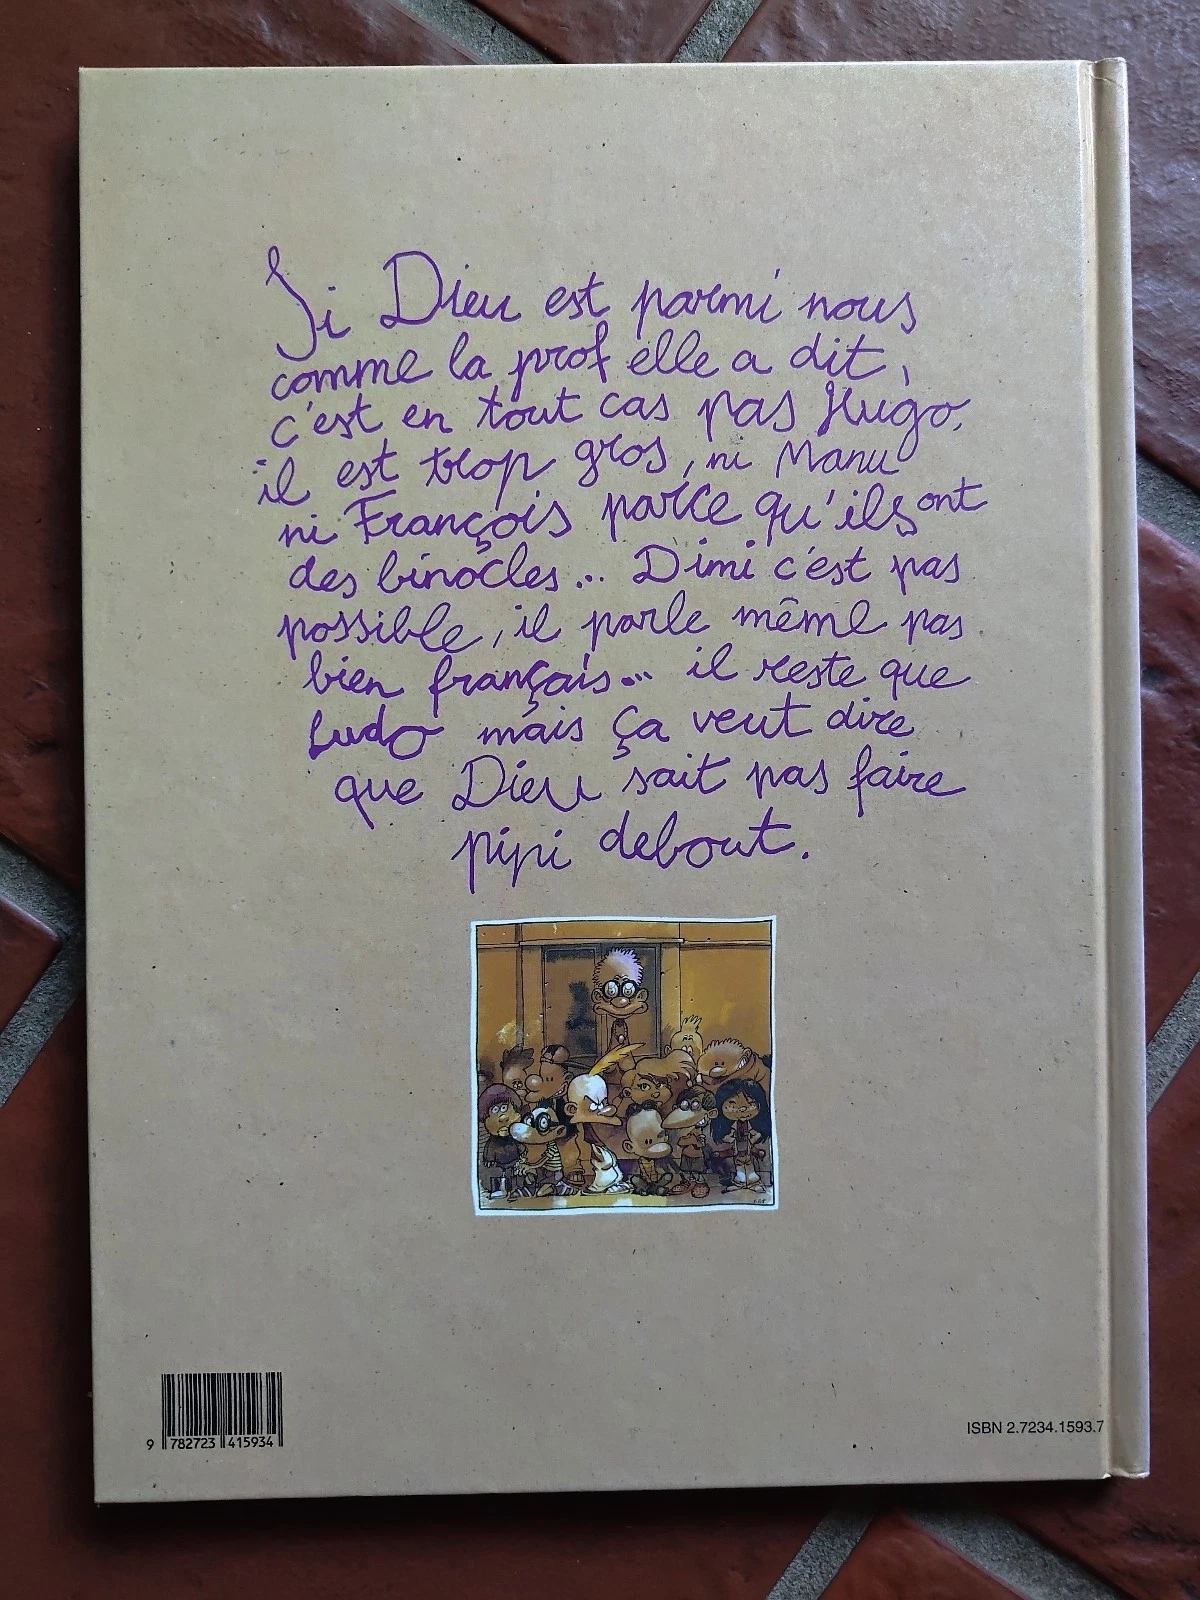 Si Dieu est parmi nous
comme la prof elle a dit,
c'est en tout cas pas Hugo,
il est trop gros, ni Manu
ni François parce qu'ils ont
des binocles... Dimi c'est pas
possible, il parle même pas
bien français... il reste que
Ludo mais ça veut dire
que Dieu sait pas faire
pipi debout.
9 782723 415934
ISBN 2.7234.1593.7